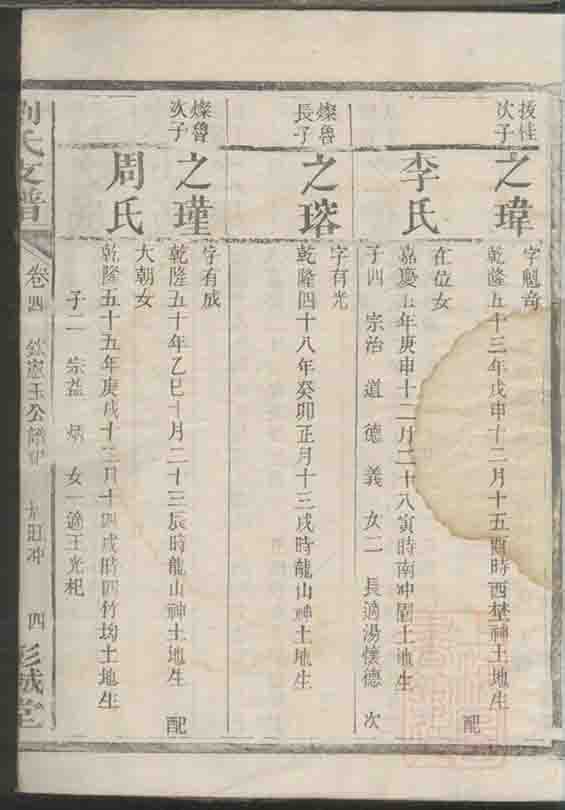 拔桂
次子
之瑋
字魁奇
乾隆五十三年戊申十二月十五酉時西埜神土地生 配
李氏
在位女
嘉慶五年庚申十二月二十八寅時南冲園土地生
子四 宗治 道 德 義 女二 長適湯懷德 次
燦魯
長子
之瑢
字有光
乾隆四十八年癸卯正月十三戌時龍山神土地生
燦魯
次子
之瑾
字有成
乾隆五十年乙巳十月二十三辰時龍山神土地生 配
周氏
大朝女
乾隆五十五年庚戌十二月十四戌時四竹坳土地生
子二 宗益 炳 女一適王光杞
劉氏支譜
卷四
欽憲玉公
冲
四
彭城堂